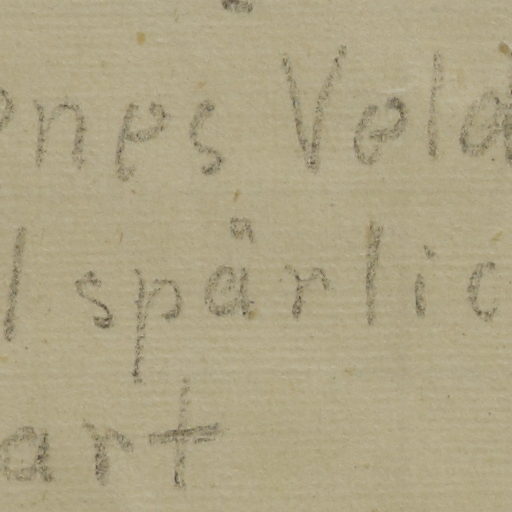 enes Veld
l spårlic
art